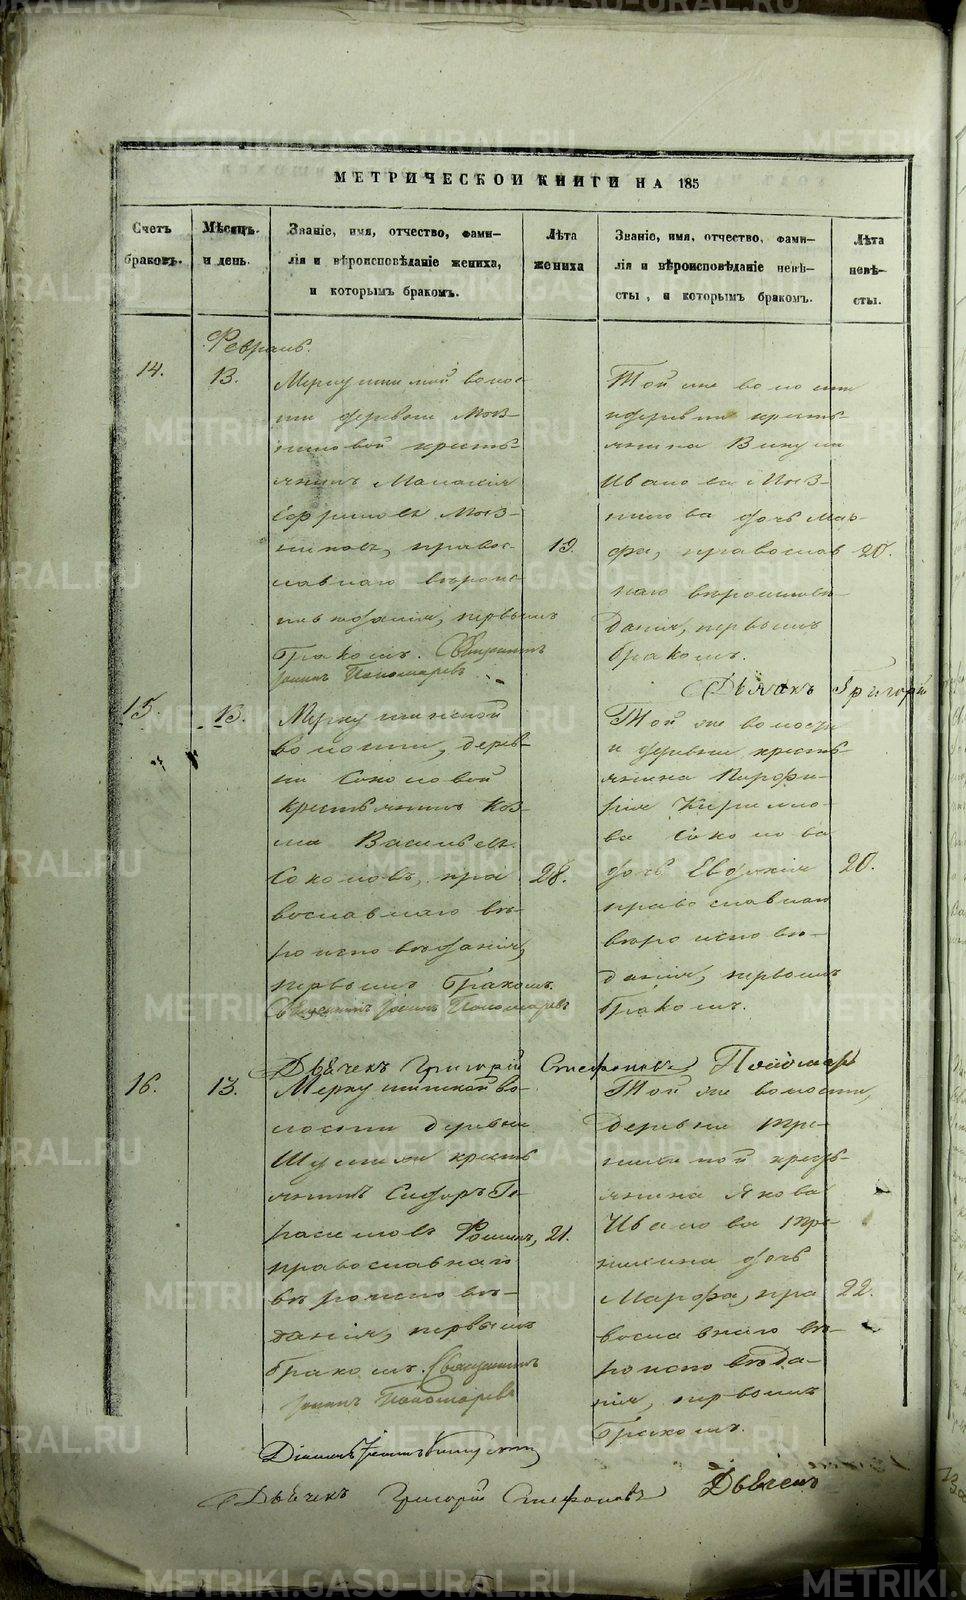 МЕТРИЧЕСКОИ КНИГИ НА 185
Счетъ браковъ.
Мѣсяцъ и день.
Званіе, имя, отчество, фами-
лія и вѣроисповѣданіе жениха,
и которымъ бракомъ.
Лѣта жениха
Званіе, имя, отчество, фами-
лія и вѣроисповѣданіе невѣ-
сты, и которымъ бракомъ.
Лѣта невѣ-
сты.
Февраль.
14.
13.
Меркушинской волос-
ти деревни
крестъ-
янинъ
правос-
лавнаго вѣроис-
повѣданія, первымъ
бракомъ. Священникъ
Іоаннъ Пономаревъ
19.
Той же волости
и деревни кресть-
янина Викула
Иванова
дочь Мар-
фа, православ
наго вѣроисповѣ-
данія, первымъ
бракомъ.
20.
Дьячекъ Григорій
15.
13.
Меркушинской
волости, дерев-
ни Соколовой
крестьянинъ Коз-
ма Васильевъ
Соколовъ, пра
вославнаго вѣ-
роисповѣданія,
первымъ бракомъ.
Священникъ Іоаннъ Пономаревъ
28.
Той же волости
и деревни кресть-
янина Порфи-
рія Кирилло-
ва Соколова
дочь Евдокія
православнаго
вѣроисповѣ-
данія, первымъ
бракомъ.
20.
Дьячекъ Григорій Стефановъ Пономарь
16.
13.
Меркушинской во-
лости деревни
кресть
янинъ Сидоръ Ге-
расимовъ Фоминъ,
православнаго
вѣроисповѣ-
данія, первымъ
бракомъ. Священникъ
Іоаннъ Пономаревъ
21.
Той же волости,
деревни
кресть-
янина Якова
Иванова
дочь
Марфа, пра
вославнаго вѣ-
роисповѣда-
нія, первымъ
бракомъ.
22.
Діаконъ Іоаннъ
Дьячекъ Григорій Стефановъ
Дьячекъ
METRIKI.GASO-URAL.RU